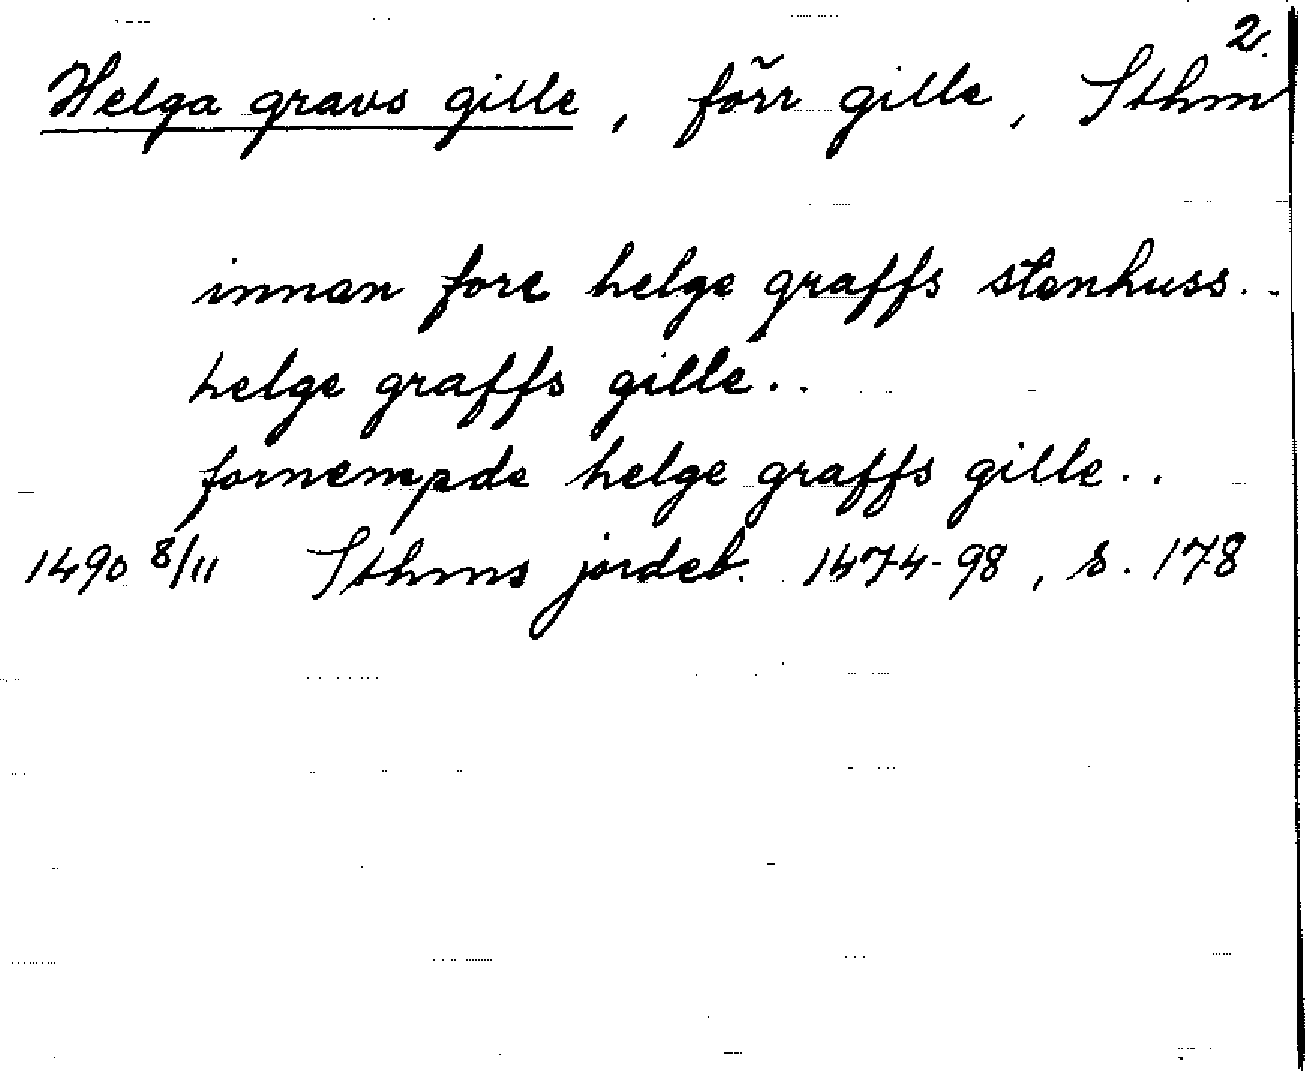 2.
Helga gravs gille, förr gille, Sthm
innan fore helge graffs stenhuss..
helge graffs gille..
fornempde helge graffs gille..
1490 8/11 Sthms jordeb. 1474-98, s. 178